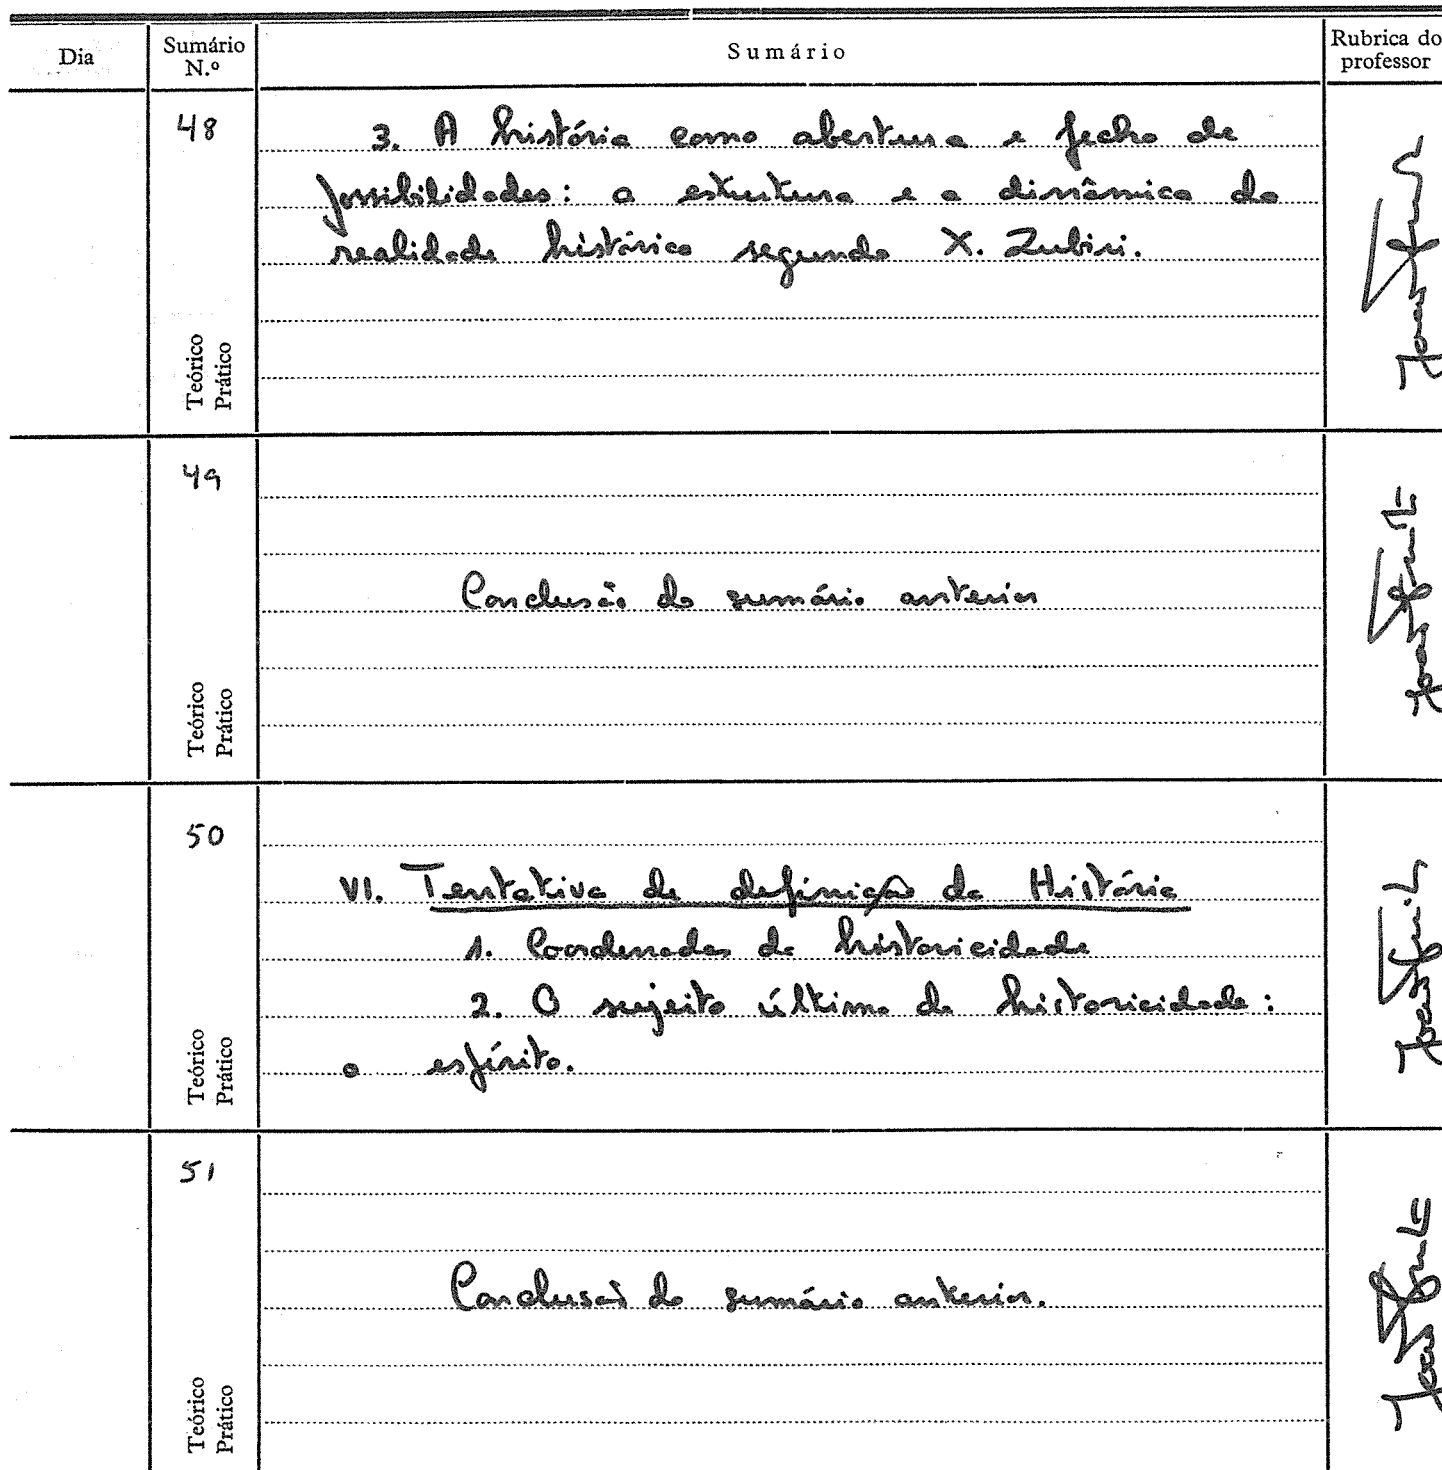 Dia
Sumário N.º
Sumário
Rubrica do professor
48
3. A história como abertura e fecho de
possibilidades: a estrutura e a dinâmica da
realidade histórica segundo X. Zubiri.
Teórico
Prático
49
Conclusão do sumário anterior
Teórico
Prático
50
VI. Tentativa de definição da História
1. Coordenadas da historicidade
2. O sujeito último da historicidade:
o espírito.
Teórico
Prático
51
Conclusão do sumário anterior.
Teórico
Prático